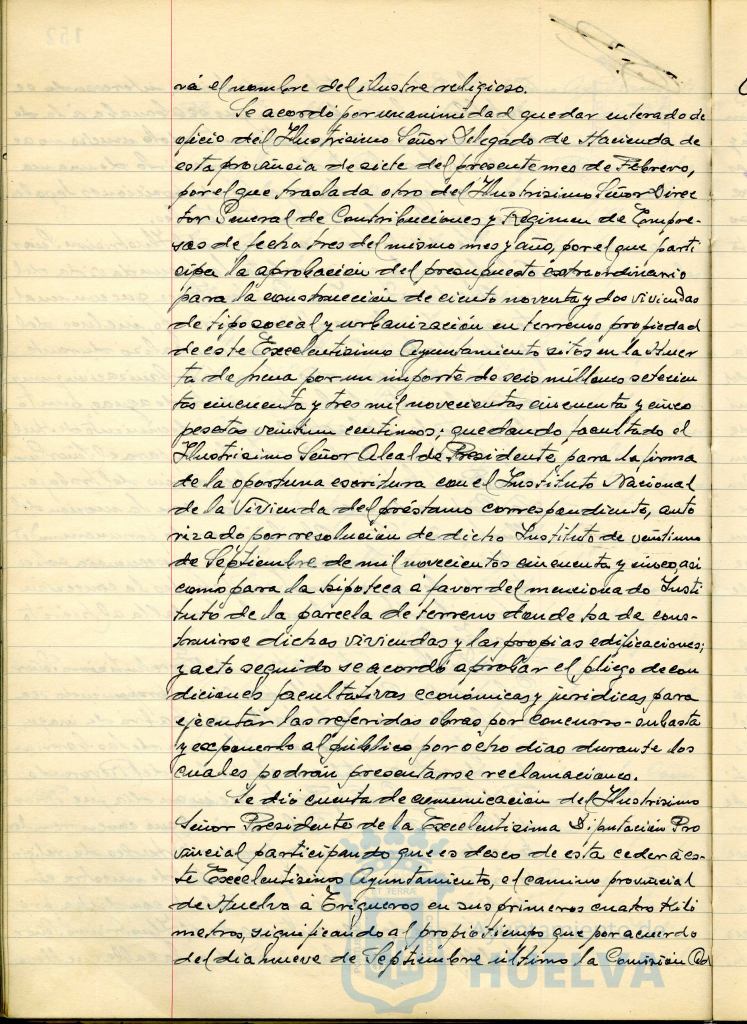 rá el nombre del ilustre religioso.
Se acordó por unanimidad quedar enterado de
oficio del Ilustrisimo Señor Delegado de Hacienda de
esta provincia de siete del presente mes de Febrero,
por el que traslada otro del Ilustrisimo Señor Direc
tor General de Contribuciones y Régimen de Empre-
sas de fecha tres del mismo mes y año, por el que parti
cipa la aprobación del presupuesto extraordinario
para la construcción de ciento noventa y dos viviendas
de tipo social y urbanización en terrenos propiedad
de este Excelentisimo Ayuntamiento sitos en la Huer
ta de Mena por un importe de seis millones setecien
tas cincuenta y tres mil novecientas cincuenta y cinco
pesetas veintiun centimos; quedando facultado el
Ilustrisimo Señor Alcalde Presidente, para la firma
de la oportuna escritura con el Instituto Nacional
de la Vivienda del préstamo correspondiente, auto
rizado por resolución de dicho Instituto de veintiuno
de Septiembre de mil novecientos cincuenta y cinco, asi
como para la hipoteca á favor del mencionado Insti
tuto de la parcela de terreno donde ha de cons-
truirse dichas viviendas y las propias edificaciones;
y acto seguido se acordó aprobar el pliego de con
diciones facultativas económicas y juridicas para
ejecutar las referidas obras por concurso-subasta
y exponerlo al público por ocho dias durante los
cuales podrán presentarse reclamaciones.
Se dió cuenta de comunicación del Ilustrisimo
Señor Presidente de la Excelentisima Diputación Pro
vincial participando que es deseo de esta ceder á es-
te Excelentisimo Ayuntamiento, el camino provincial
de Huelva á Trigueros en sus primeros cuatro kiló
metros, significando al propio tiempo que por acuerdo
del dia nueve de Septiembre último la Comisión Ad
HUELVA